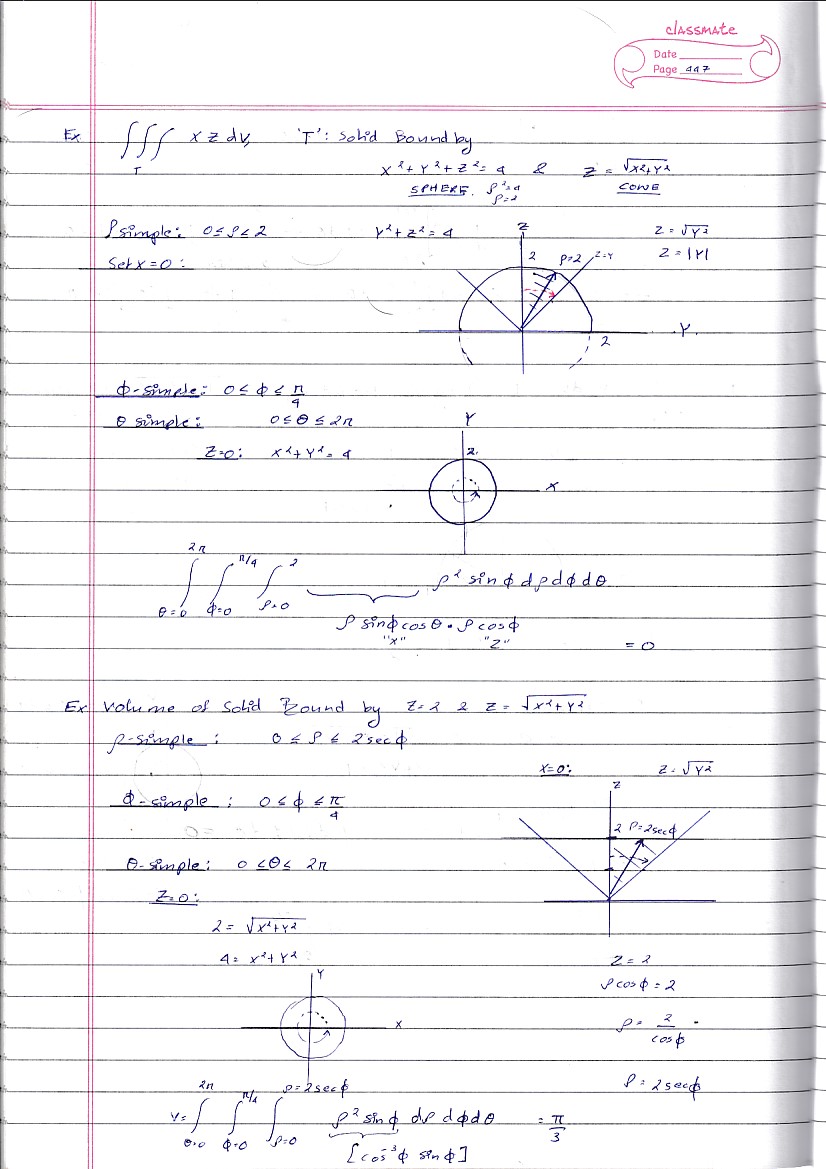 classmate
Date
Page 447
Ex ∫∫∫_T x z dv, 'T': Solid Bound by
x²+y²+z²=4 & z = √x²+y²
SPHERE. ρ²=4 CONE
ρ=2
ρ simple: 0≤ρ≤2 y²+z²=4 z z=√y²
Set x=0: 2 ρ=2 z=y z=|y|
y
2
φ-simple: 0≤φ≤π/4
θ simple: 0≤θ≤2π y
z=0: x²+y²=4 2
x
2π π/4 2
∫ ∫ ∫ ρ² sinφ dρ dφ dθ
θ=0 φ=0 ρ=0
ρ sinφ cosθ • ρ cosφ
"x" "z" = 0
Ex Volume of Solid Bound by z=2 & z=√x²+y²
ρ-simple: 0≤ρ≤2secφ
x=0: z=√y²
z
φ-simple: 0≤φ≤π/4
2 ρ=2secφ
θ-simple: 0≤θ≤2π
z=0:
2=√x²+y²
4=x²+y² z=2
y ρcosφ=2
x ρ = 2/cosφ
ρ=2secφ
2π π/4 ρ=2secφ
V= ∫ ∫ ∫ ρ² sinφ dρ dφ dθ = π/3
θ=0 φ=0 ρ=0
[cos⁻³φ sinφ]